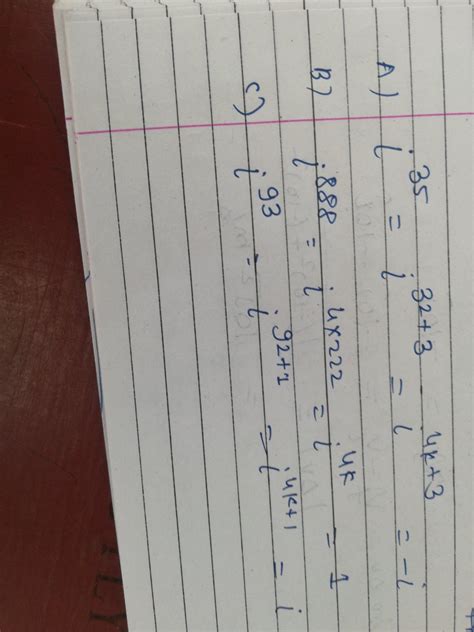 A) i^35 = i^32+3 = i^4k+3 = -i
B) i^888 = i^4x222 = i^4k = 1
C) i^93 = i^92+1 = i^4k+1 = i